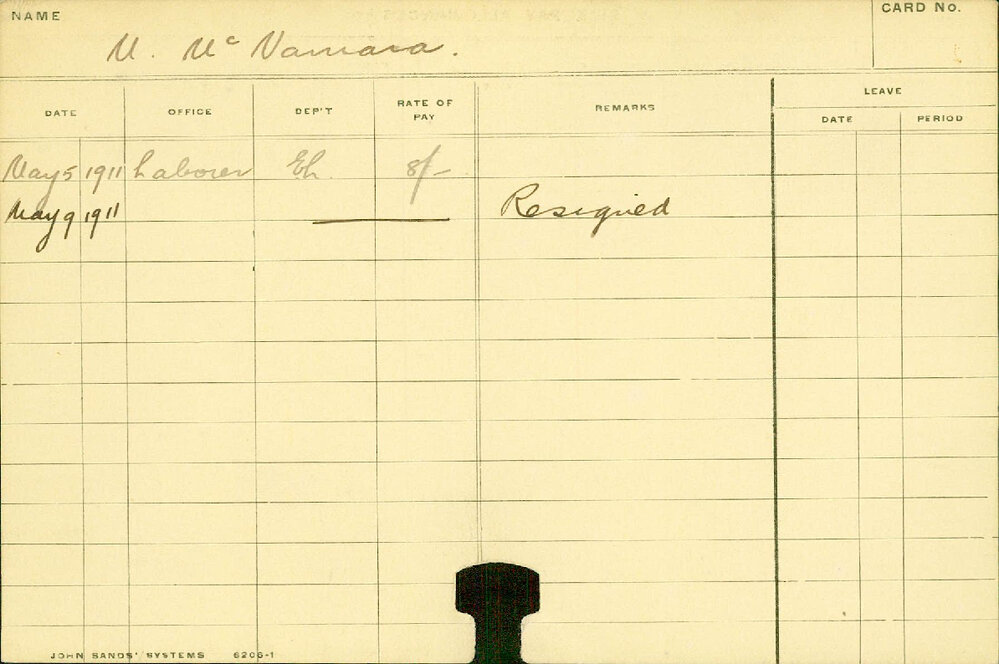 NAME
CARD No.
M. Mc Namara.
DATE OFFICE DEP'T RATE OF PAY REMARKS LEAVE
DATE PERIOD
May 5 1911 Laborer Eh. 8/-
May 9 1911 Resigned
JOHN SANDS' SYSTEMS 6206-1